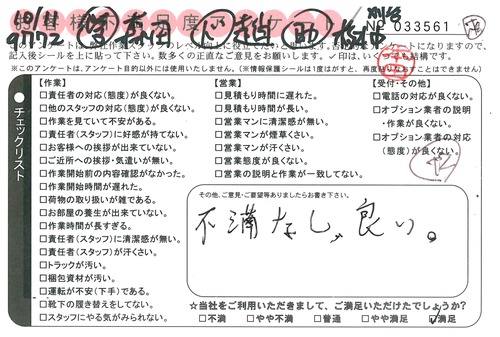 No 033561
このアンケートは、弊社作業スタッフのレベル向上に役立てたいと思います。
記入後シールを上に貼って下さい。数多くの正直なご意見をお願いします。✓印は、いくつでも結構です。
※このアンケートは、アンケート目的以外には使用いたしません。(※情報保護シールは1度はがすと、再度貼りなおすことはできません)
チェックリスト
【作業】
□責任者の対応(態度)が良くない。
□他のスタッフの対応(態度)が良くない。
□作業を見ていて不安がある。
□責任者(スタッフ)に好感が持てない。
□お客様への挨拶が出来ていない。
□ご近所への挨拶・気遣いが無い。
□作業開始前の内容確認がなかった。
□作業開始時間が遅れた。
□荷物の取り扱いが雑である。
□お部屋の養生が出来ていない。
□作業時間が長すぎる。
□責任者(スタッフ)に清潔感が無い。
□責任者(スタッフ)が汗くさい。
□トラックが汚い。
□梱包資材が汚い。
□運転が不安(下手)である。
□靴下の履き替えをしてない。
□スタッフにやる気がみられない。
【営業】
□見積もり時間に遅れた。
□見積もり時間が長い。
□営業マンに清潔感が無い。
□営業マンが煙草くさい。
□営業マンが汗くさい。
□営業態度が良くない。
□営業の説明と作業が一致してない。
【受付・その他】
□電話の対応が良くない。
□オプション業者の説明
・作業が良くない。
□オプション業者の対応
(態度)が良くない。
その他、ご意見・ご要望等ありましたらお書き下さい。
不満なし、良い。
☆当社をご利用いただきまして、ご満足いただけたでしょうか?
□不満 □やや不満 □普通 □やや満足 ☑満足